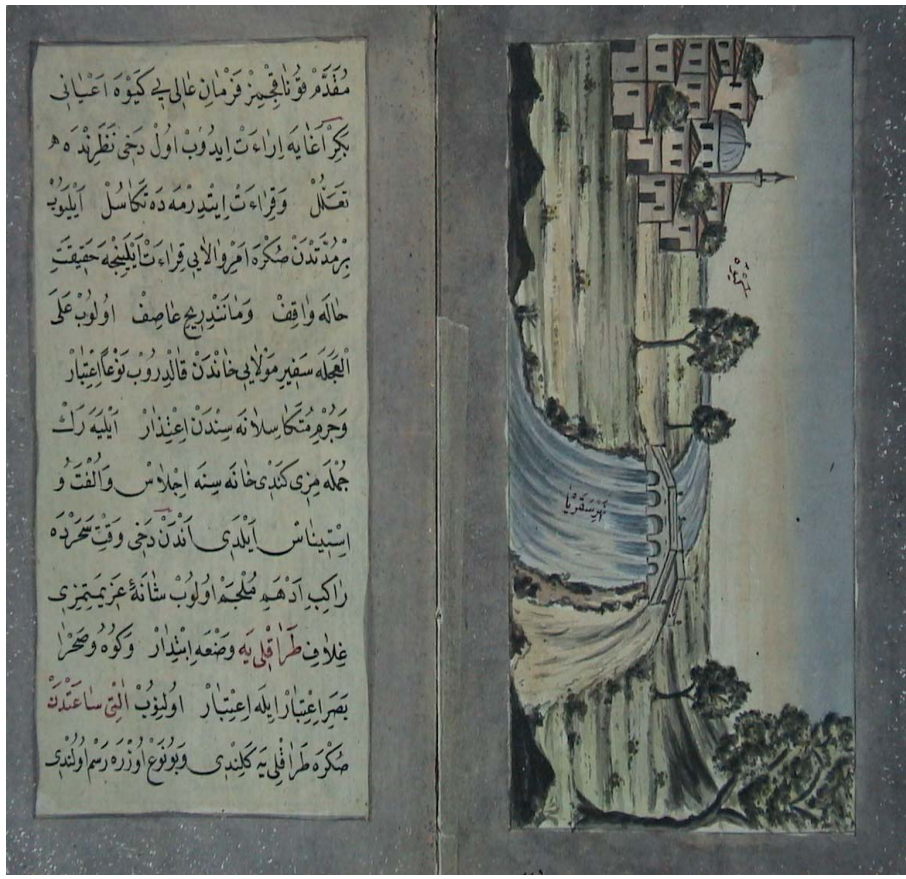 مُقَدَّمْ قُوْنَاقْجِمِزْ فَرْمَانِ عَالِى يِى كَيْوَه اَعْيَانِى
بَكِرْ اَغَايَه اِرَاءَتْ اِيدُوبْ اُولْ دَخِى نَظَرِنْدَه
تَعَلُّلْ وَقِرَاءَتْ اِيتْدِرْمَه دَه تَكَاسُلْ اَيْلَيُوبْ
بِرْمُدَّتْدَنْ صُكْرَه اَمْرِ وَالَايِى قِرَاءَتْ اَيْلَيِنْجَه حَقِيقَتِ
حَالَه وَاقِفْ وَمَانَنْدِ رِيحِ عَاصِفْ اُولُوبْ عَلَى
الْعَجَلَه سَفِيرِ مَوْلَايِى خَانْدَنْ قَالْدِرُوبْ نَوْعًا اِعْتِبَارْ
وَجُرْمِ مُتَكَاسِلَانَه سِنْدَنْ اِعْتِذَارْ اَيْلَيَه رَكْ
جُمْلَه مِزِى كَنْدِى خَانَه سِنَه اِجْلَاسْ وَاُلْفَتْ وُ
اِسْتِينَاسْ اَيْلَدِى اَنْدَنْ دَخِى وَقْتِ سَحَرْدَه
رَاكِبِ اَدْهَمِ مُلْجَمْ اُولُوبْ شَانَهٔ عَزِيمَتِمِزِى
غِلَافِ طَرَاقْلِى يَه وَضْعَه اِبْتِدَارْ وَكُوه وُ صَحْرَا
بَصَرِ اِعْتِبَارْ اِيلَه اِعْتِبَارْ اُولِنُوبْ اَلْتِى سَاعَتْدَنْ
صُكْرَه طَرَاقْلِى يَه كَلِنْدِى وَبُو نَوْعْ اُوزْرَه رَسْمْ اُولُنْدِى
نهر سقريا